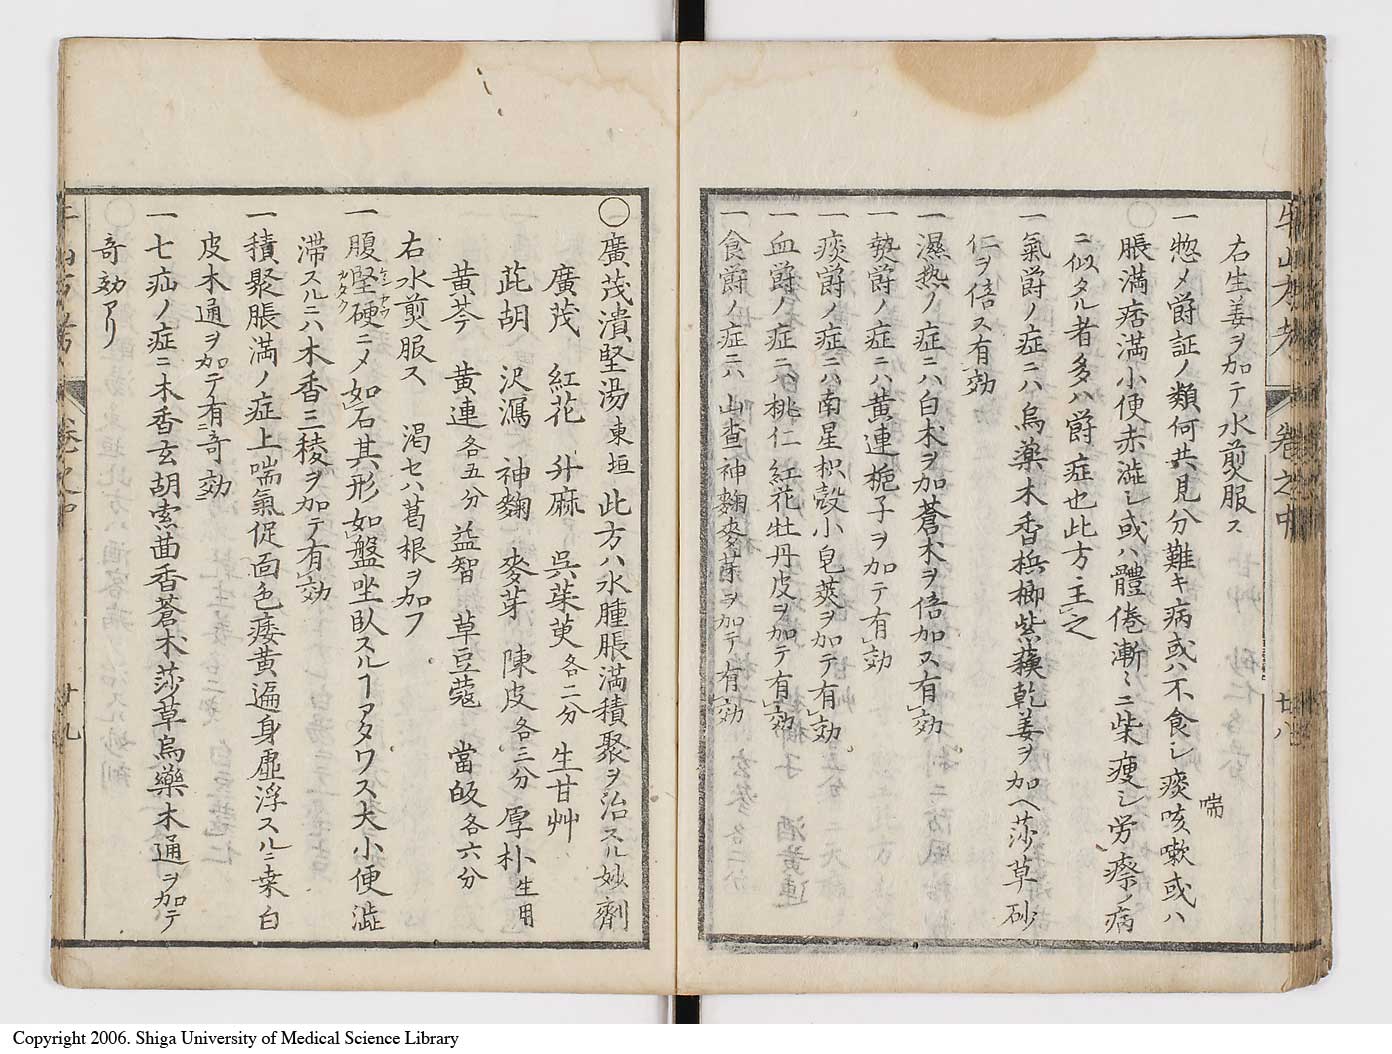 牛山方考 卷之中 廿八
右生姜ヲ加テ水煎服ス
一惣メ爵証ノ類何共見分難キ病或ハ不食シ痰咳嗽或ハ
喘
脹満痞満小便赤澁シ或ハ體倦漸〻ニ柴瘦シ労瘵ノ病
ニ似タル者多ハ爵症也此方主之
一氣爵ノ症ニハ烏藥木香梹榔紫蘓乾姜ヲ加ヘ莎草砂
仁ヲ倍ス有効
一濕熱ノ症ニハ白朮ヲ加蒼朮ヲ倍加ス有効
一熱爵ノ症ニハ黄連梔子ヲ加テ有効
一痰爵ノ症ニハ南星枳殻小皂莢ヲ加テ有効
一血爵ノ症ニハ桃仁紅花牡丹皮ヲ加テ有効
一食爵ノ症ニハ山査神麴麥芽ヲ加テ有効
〇廣茂潰堅湯東垣此方ハ水腫脹満積聚ヲ治スル妙劑
廣茂 紅花 升麻 呉茱萸各二分 生甘艸
茈胡 沢瀉 神麴 麥芽 陳皮各三分 厚朴生用
黄芩 黄連各五分 益智 草豆蔻 當皈各六分
右水煎服ス 渇セハ葛根ヲ加フ
一腹堅硬ニメ如石其形如盤坐臥スルヿアタワス大小便澁
滞スルニハ木香三稜ヲ加テ有効
一積聚脹満ノ症上喘氣促面色痿黄遍身虚浮スルニ桒白
皮木通ヲ加テ有奇効
一七疝ノ症ニ木香玄胡索茴香蒼朮莎草烏藥木通ヲ加テ
奇効アリ
卷之中 廿九
Copyright 2006. Shiga University of Medical Science Library